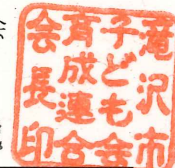 滝沢市
子ども会
育成連合
会長印